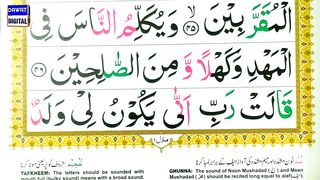 DAWAT
DIGITAL
الْمُقَرَّبِيْنَ ۙ﴿۴۵﴾ وَيُكَلِّمُ النَّاسَ فِى
الْمَهْدِ وَكَهْلًا وَّ مِنَ الصّٰلِحِيْنَ ﴿۴۶﴾
قَالَتْ رَبِّ اَنّٰى يَكُوْنُ لِىْ وَلَدٌ
منزل ۱
TAFKHEEM: The letters should be sounded with
mouth full (bulky sound) means with a broad sound.
GHUNNA: The sound of Noon Mushadad (نّ) and Meem
Mushadad (مّ) should be recited long equal to